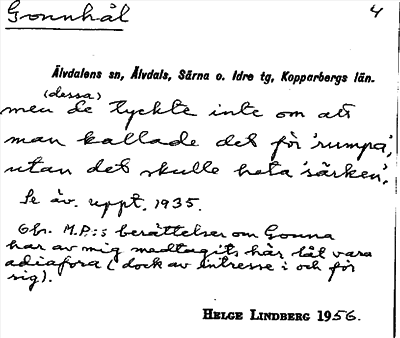 Gonnhål 4
Älvdalens sn, Älvdals, Särna o. Idre tg, Kopparbergs län.
(dessa)
men de tyckte inte om att
man kallade det för 'rumpa',
utan det skulle heta 'särken'.
Se äv. uppt. 1935.
Obs. M.P.:s berättelser om Gonna
har av mig medtagits här låt vara
adiafora (dock av intresse i och för
sig).
HELGE LINDBERG 1956.